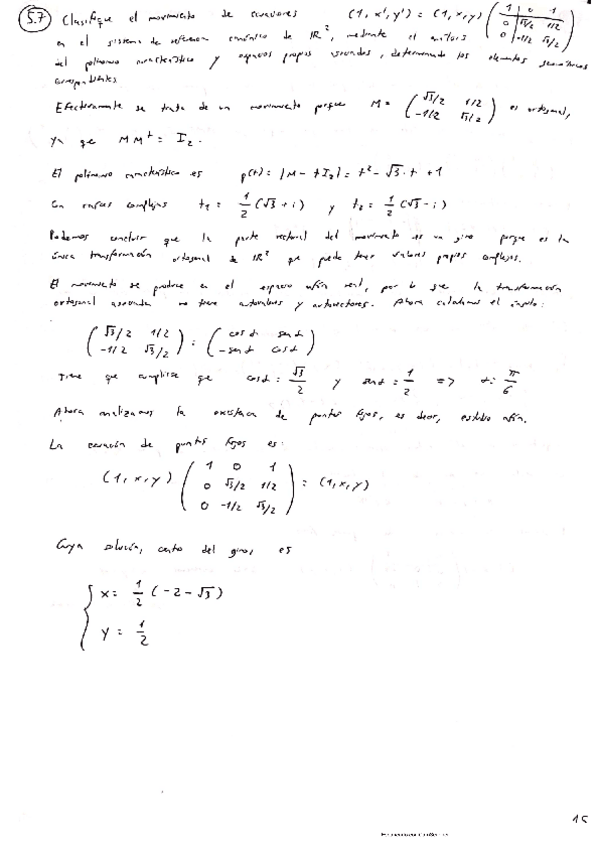 5.7 Clasifique el movimiento de ecuaciones (1, x', y') = (1, x, y) ( 1 0 1 / 0 √3/2 1/2 / 0 -1/2 √3/2 )
en el sistema de referencia canónico de IR², mediante el análisis
del polinomio característico y espacios propios asociados, determinando los elementos geométricos
correspondientes.
Efectivamente se trata de un movimiento porque M = ( √3/2 1/2 / -1/2 √3/2 ) es ortogonal,
ya que M Mᵗ = I₂.
El polinomio característico es p(t) = |M - t I₂| = t² - √3 · t + 1
Con raíces complejas t₁ = 1/2 (√3 + i) y t₂ = 1/2 (√3 - i)
Podemos concluir que la parte vectorial del movimiento es un giro porque es la
única transformación ortogonal de IR² que puede tener valores propios complejos.
El movimiento se produce en el espacio afín real, por lo que la transformación
ortogonal asociada no tiene autovalores y autovectores. Ahora calculamos el ángulo:
( √3/2 1/2 / -1/2 √3/2 ) = ( cos α sen α / -sen α cos α )
Tiene que cumplirse que cos α = √3/2 y sen α = 1/2 => α = π/6
Ahora analizamos la existencia de puntos fijos, es decir, estudio afín.
La ecuación de puntos fijos es:
(1, x, y) ( 1 0 1 / 0 √3/2 1/2 / 0 -1/2 √3/2 ) = (1, x, y)
Cuya solución, centro del giro, es
{ x = 1/2 (-2 - √3)
y = 1/2
15